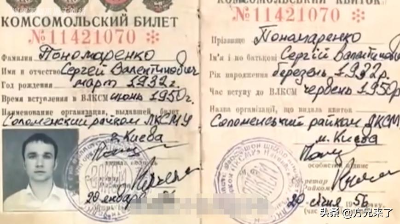 КОМСОМОЛЬСКИЙ БИЛЕТ
№ 11421070
Фамилия Пономаренко
Имя и отчество Сергей Валентинович
Год рождения март 1932 г.
Время вступления в ВЛКСМ июнь 1950 г.
Наименование организации, выдавшей
Соломенский райком ЛКСМУ
г. Киева
29 января 56
КВИТОК
№ 11421070
Прізвище Пономаренко
Ім'я і по батькові Сергій Валентинович
Рік народження березень 1932 р.
Час вступу до ВЛКСМ червень 1950 р.
Назва організації, що видала квиток
Соломенський райком ЛКСМУ
м. Києва
29 січня 56
头条 @方兄来了